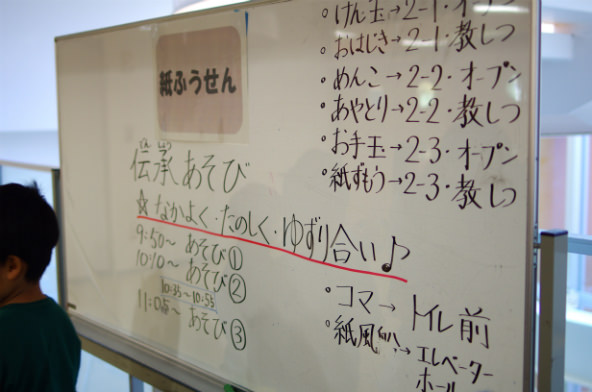 紙ふうせん
伝承あそび
でんしょう
☆なかよく・たのしく・ゆずり合い♪
9:50～ あそび①
10:10～ あそび②
10:35～10:55
11:05～ あそび③
・けん玉→2-1・オープン
・おはじき→2-1・教しつ
・めんこ→2-2・オープン
・あやとり→2-2・教しつ
・お手玉→2-3・オープン
・紙ずもう→2-3・教しつ
・コマ→トイレ前
・紙風せん→エレベーター
ホール